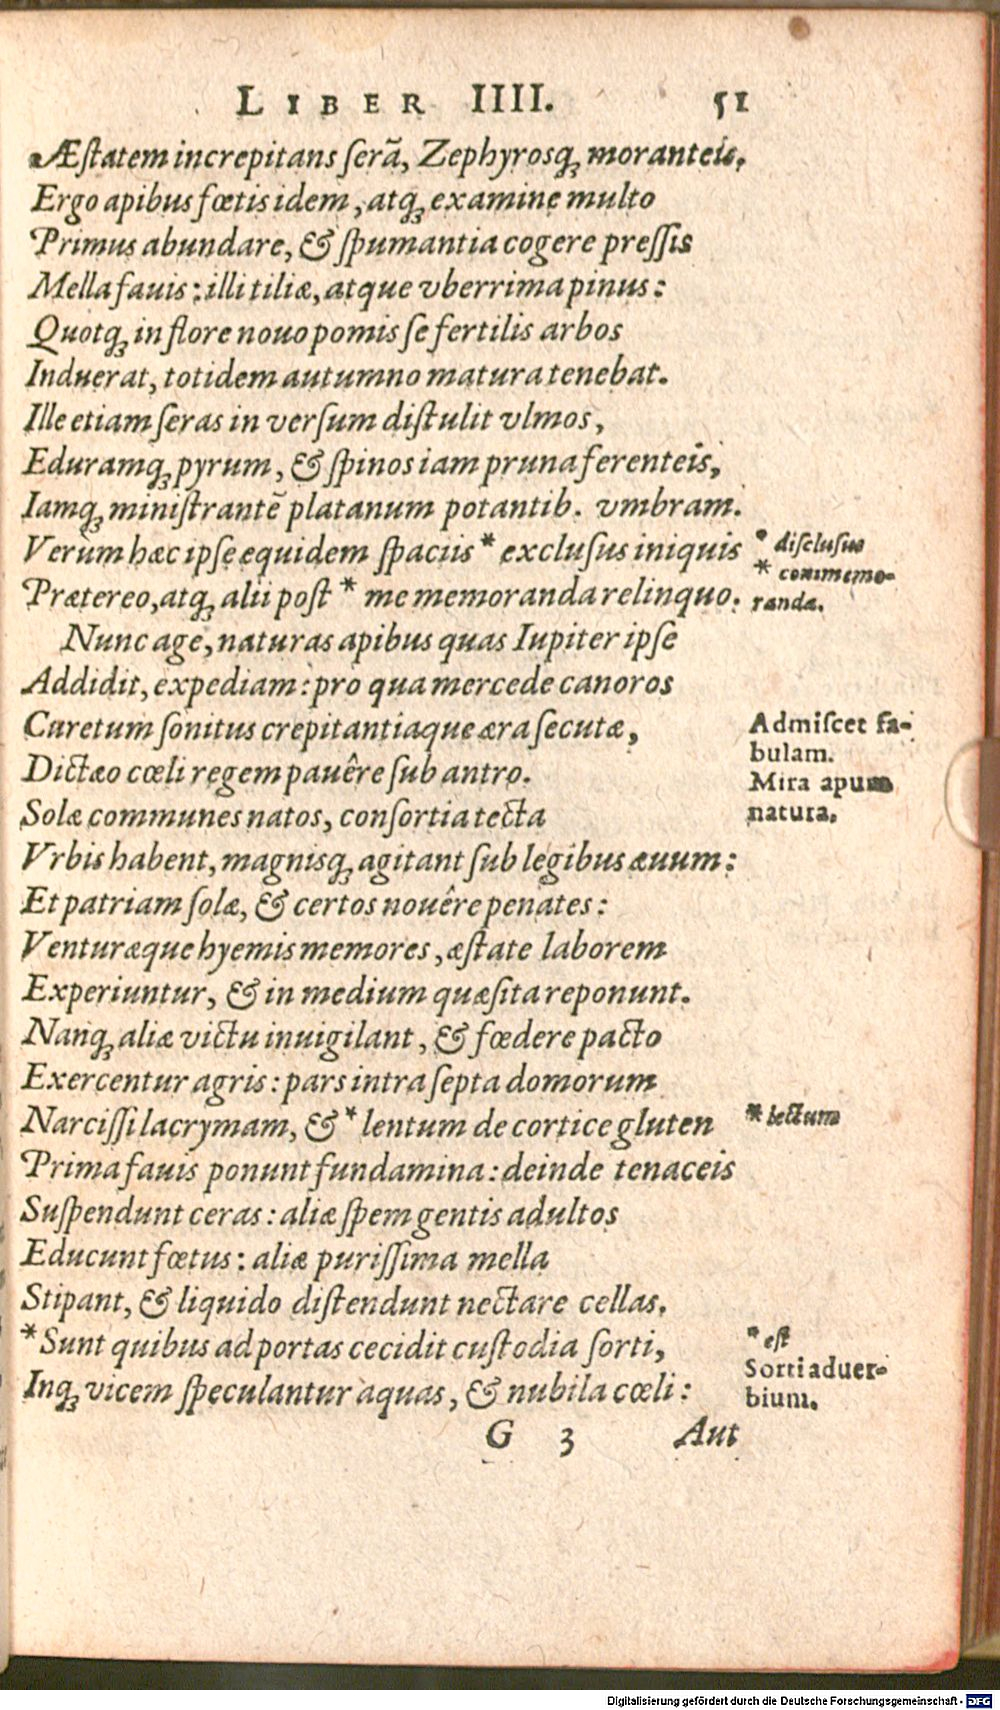 LIBER IIII. 51
Æſtatem increpitans ſerā, Zephyrosq́ꝫ moranteis,
Ergo apibus fœtis idem, atqꝫ examine multo
Primus abundare, & ſpumantia cogere preſſis
Mella fauis: illi tiliæ, atque vberrima pinus:
Quotqꝫ in flore nouo pomis ſe fertilis arbos
Induerat, totidem autumno matura tenebat.
Ille etiam ſeras in verſum diſtulit vlmos,
Eduramqꝫ pyrum, & ſpinos iam pruna ferenteis,
Iamqꝫ miniſtrantē platanum potantib. vmbram.
Verùm hæc ipſe equidem ſpaciis * excluſus iniquis
Prætereo, atqꝫ alii poſt * me memoranda relinquo.
* diſcluſus
* commemo-
randa.
Nunc age, naturas apibus quas Iupiter ipſe
Addidit, expediam: pro qua mercede canoros
Curetum ſonitus crepitantiaque æra ſecutæ,
Dictæo cœli regem pauêre ſub antro.
Solæ communes natos, conſortia tecta
Admiſcet fa-
bulam.
Mira apum
natura.
Vrbis habent, magnisqꝫ agitant ſub legibus æuum:
Et patriam ſolæ, & certos nouêre penates:
Venturæque hyemis memores, æſtate laborem
Experiuntur, & in medium quæſita reponunt.
Nanqꝫ aliæ victu inuigilant, & fœdere pacto
Exercentur agris: pars intra ſepta domorum
Narciſſi lacrymam, & * lentum de cortice gluten
* lectum
Prima fauis ponunt fundamina: deinde tenaceis
Suſpendunt ceras: aliæ ſpem gentis adultos
Educunt fœtus: aliæ puriſſima mella
Stipant, & liquido diſtendunt nectare cellas.
* Sunt quibus ad portas cecidit cuſtodia ſorti,
Inqꝫ vicem ſpeculantur aquas, & nubila cœli:
* eſt
Sorti aduer-
bium.
G 3 Aut
Digitalisierung gefördert durch die Deutsche Forschungsgemeinschaft - DFG